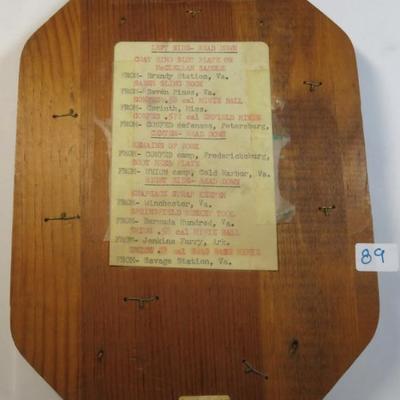 LEFT SIDE- READ DOWN
COAT RING SLOT PLATE ON
McCLELLAN SADDLE
FROM- Brandy Station, Va.
SABER SLING HOOK
FROM- Seven Pines, Va.
CONFED .58 cal MINIE BALL
FROM- Corinth, Miss.
CONFED .577 cal ENFIELD MINIE
FROM- CONFED defenses, Petersburg,
CENTER- READ DOWN
REMAINS OF BOOK
FROM- CONFED camp, Fredericksburg,
BOOT HEEL PLATE
FROM- UNION camp, Cold Harbor, Va.
RIGHT SIDE- READ DOWN
KNAPSACK STRAP KEEPER
FROM- Winchester, Va.
SPRINGFIELD MUSKET TOOL
FROM- Bermuda Hundred, Va.
UNION .58 cal MINIE BALL
FROM- Jenkins Furry, Ark.
UNION .58 cal BASE MINIE
FROM- Savage Station, Va.
89